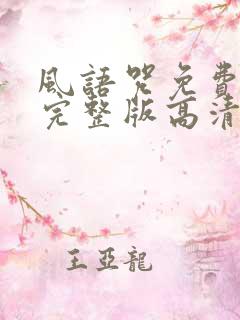 風語咒免費
完整版高清
王亞龍